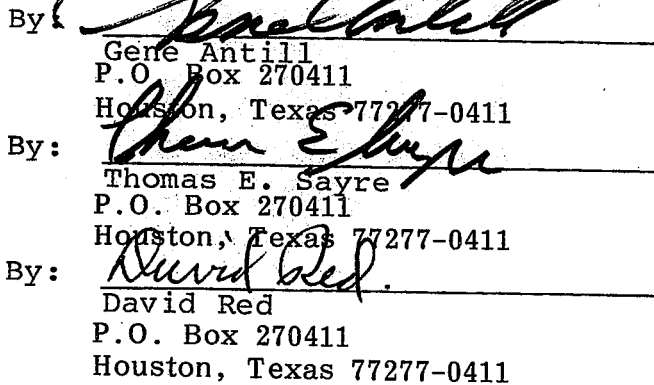 By:
Gene Antill
P.O. Box 270411
Houston, Texas 77277-0411
By: Thomas E. Sayre
Thomas E. Sayre
P.O. Box 270411
Houston, Texas 77277-0411
By: David Red.
David Red
P.O. Box 270411
Houston, Texas 77277-0411